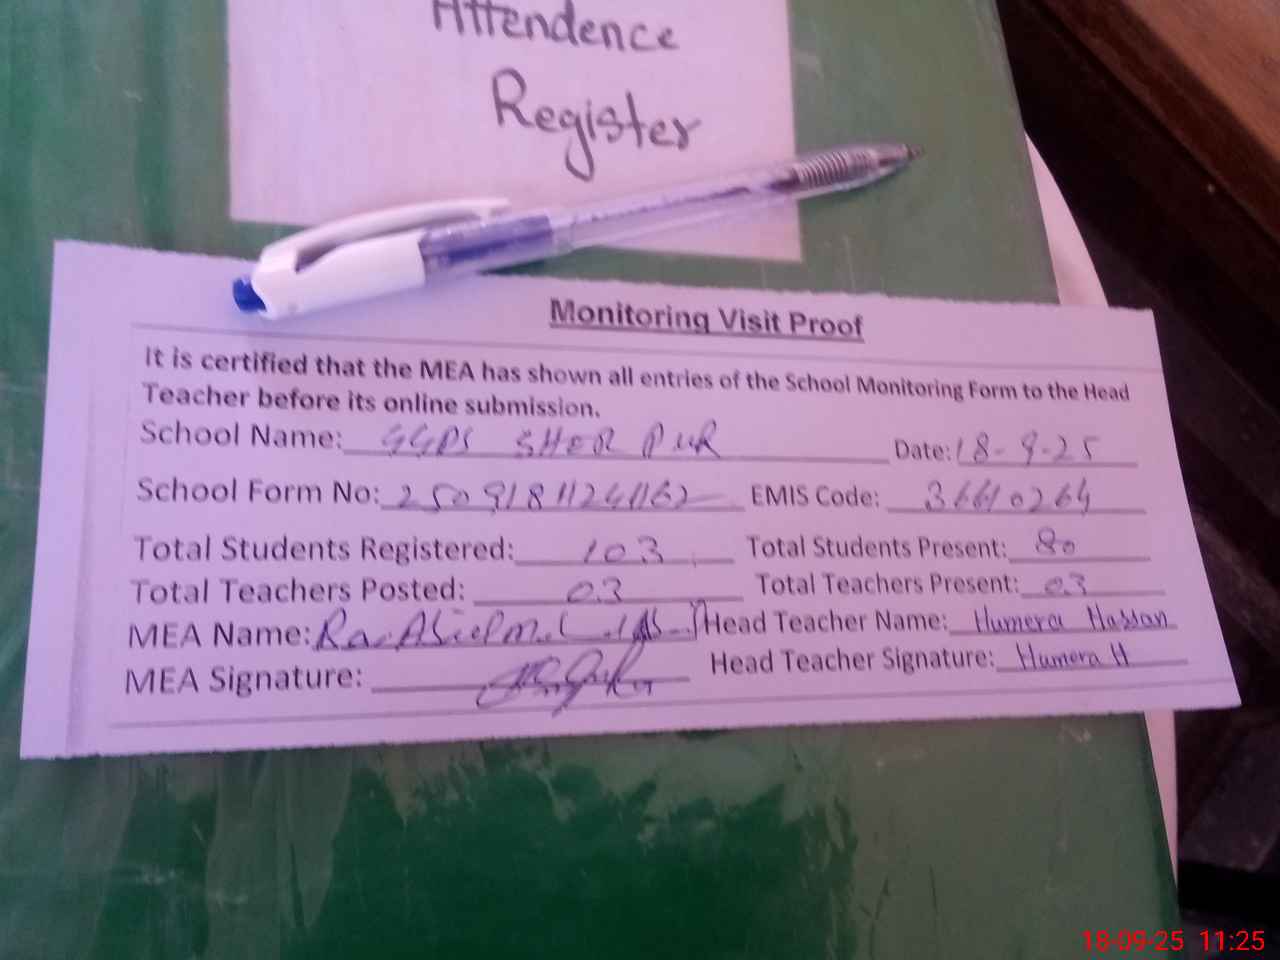 Attendence
Register
Monitoring Visit Proof
It is certified that the MEA has shown all entries of the School Monitoring Form to the Head
Teacher before its online submission.
School Name: GGPS SHER PUR Date: 18-9-25
School Form No: EMIS Code: 36610264
Total Students Registered: 103 Total Students Present: 80
Total Teachers Posted: 03 Total Teachers Present: 03
MEA Name: Head Teacher Name: Humera Hassan
MEA Signature: Head Teacher Signature: Humera H
18-09-25 11:25